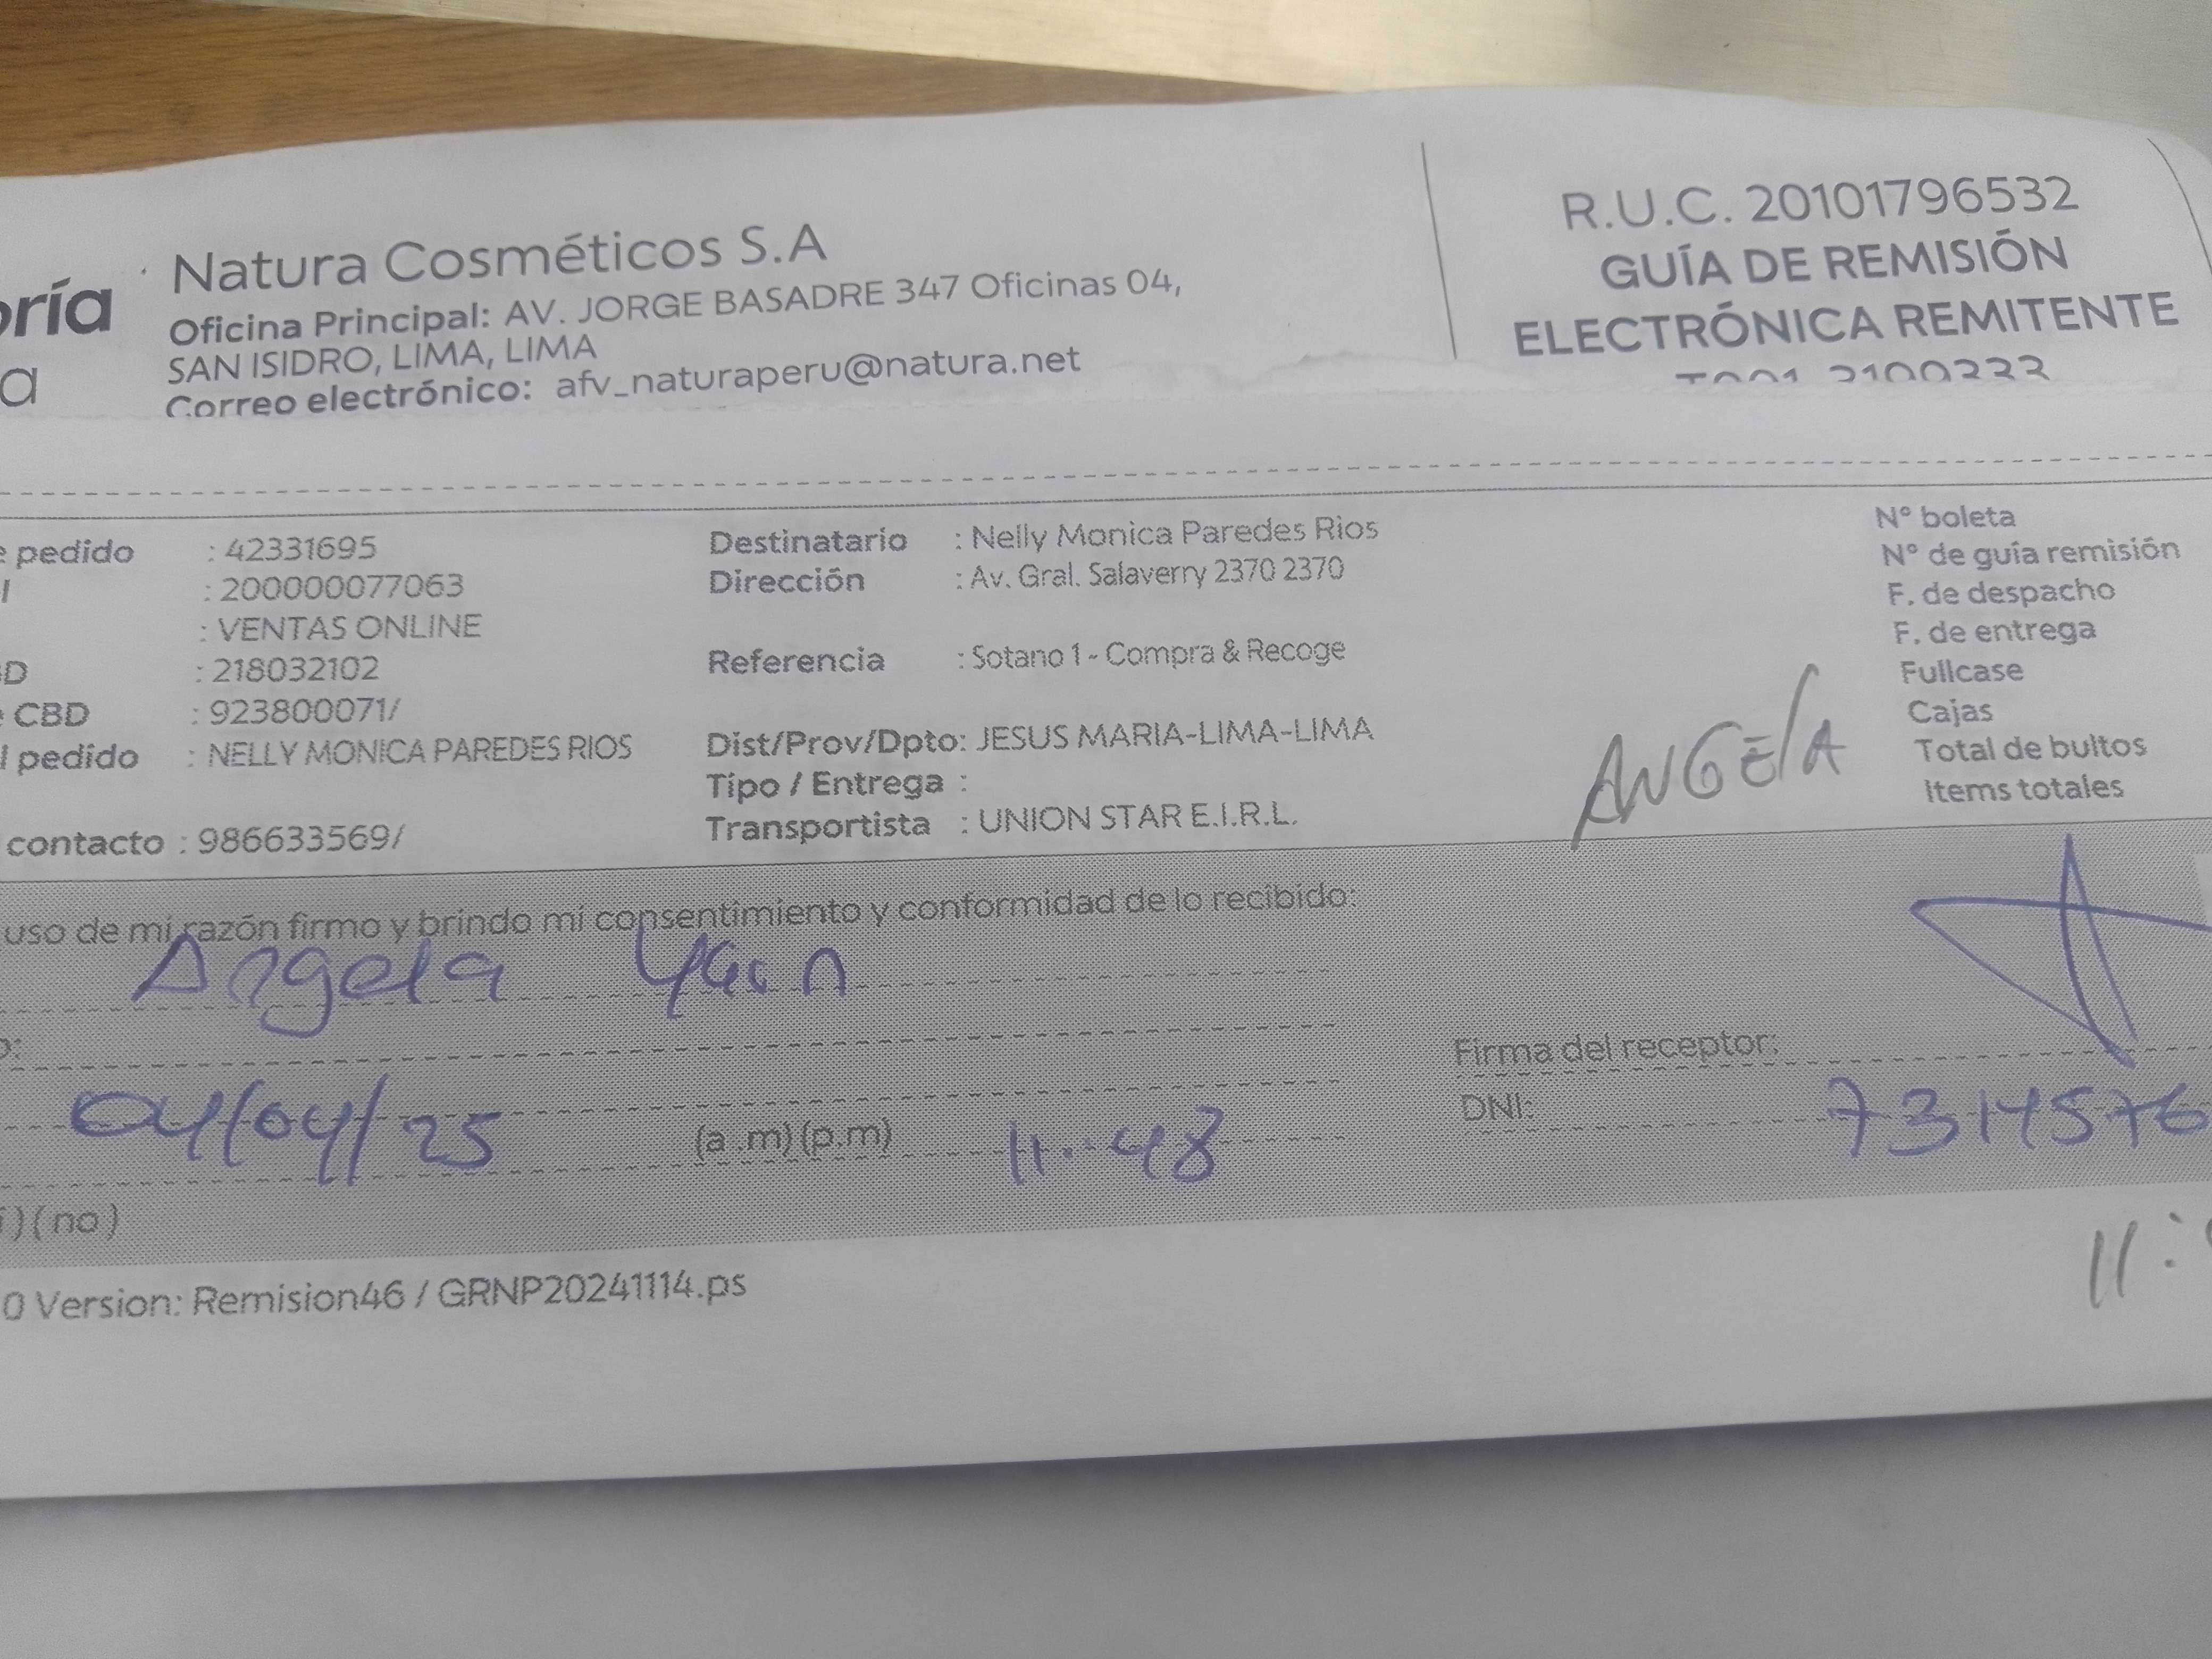 oría
a
Natura Cosméticos S.A
Oficina Principal: AV. JORGE BASADRE 347 Oficinas 04,
SAN ISIDRO, LIMA, LIMA
Correo electrónico: afv_naturaperu@natura.net
R.U.C. 20101796532
GUÍA DE REMISIÓN
ELECTRÓNICA REMITENTE
e pedido : 42331695
l : 200000077063
: VENTAS ONLINE
D : 218032102
e CBD : 923800071/
l pedido : NELLY MONICA PAREDES RIOS
contacto : 986633569/
Destinatario : Nelly Monica Paredes Rios
Dirección : Av. Gral. Salaverry 2370 2370
Referencia : Sotano 1 - Compra & Recoge
Dist/Prov/Dpto: JESUS MARIA-LIMA-LIMA
Tipo / Entrega :
Transportista : UNION STAR E.I.R.L.
ANGElA
N° boleta
N° de guía remisión
F. de despacho
F. de entrega
Fullcase
Cajas
Total de bultos
Items totales
uso de mi razón firmo y brindo mi consentimiento y conformidad de lo recibido:
Angela
o:
Firma del receptor:
04/04/25 (a .m) (p.m) 11:48
DNI: 7314576
) ( no )
11:
0 Version: Remision46 / GRNP20241114.ps